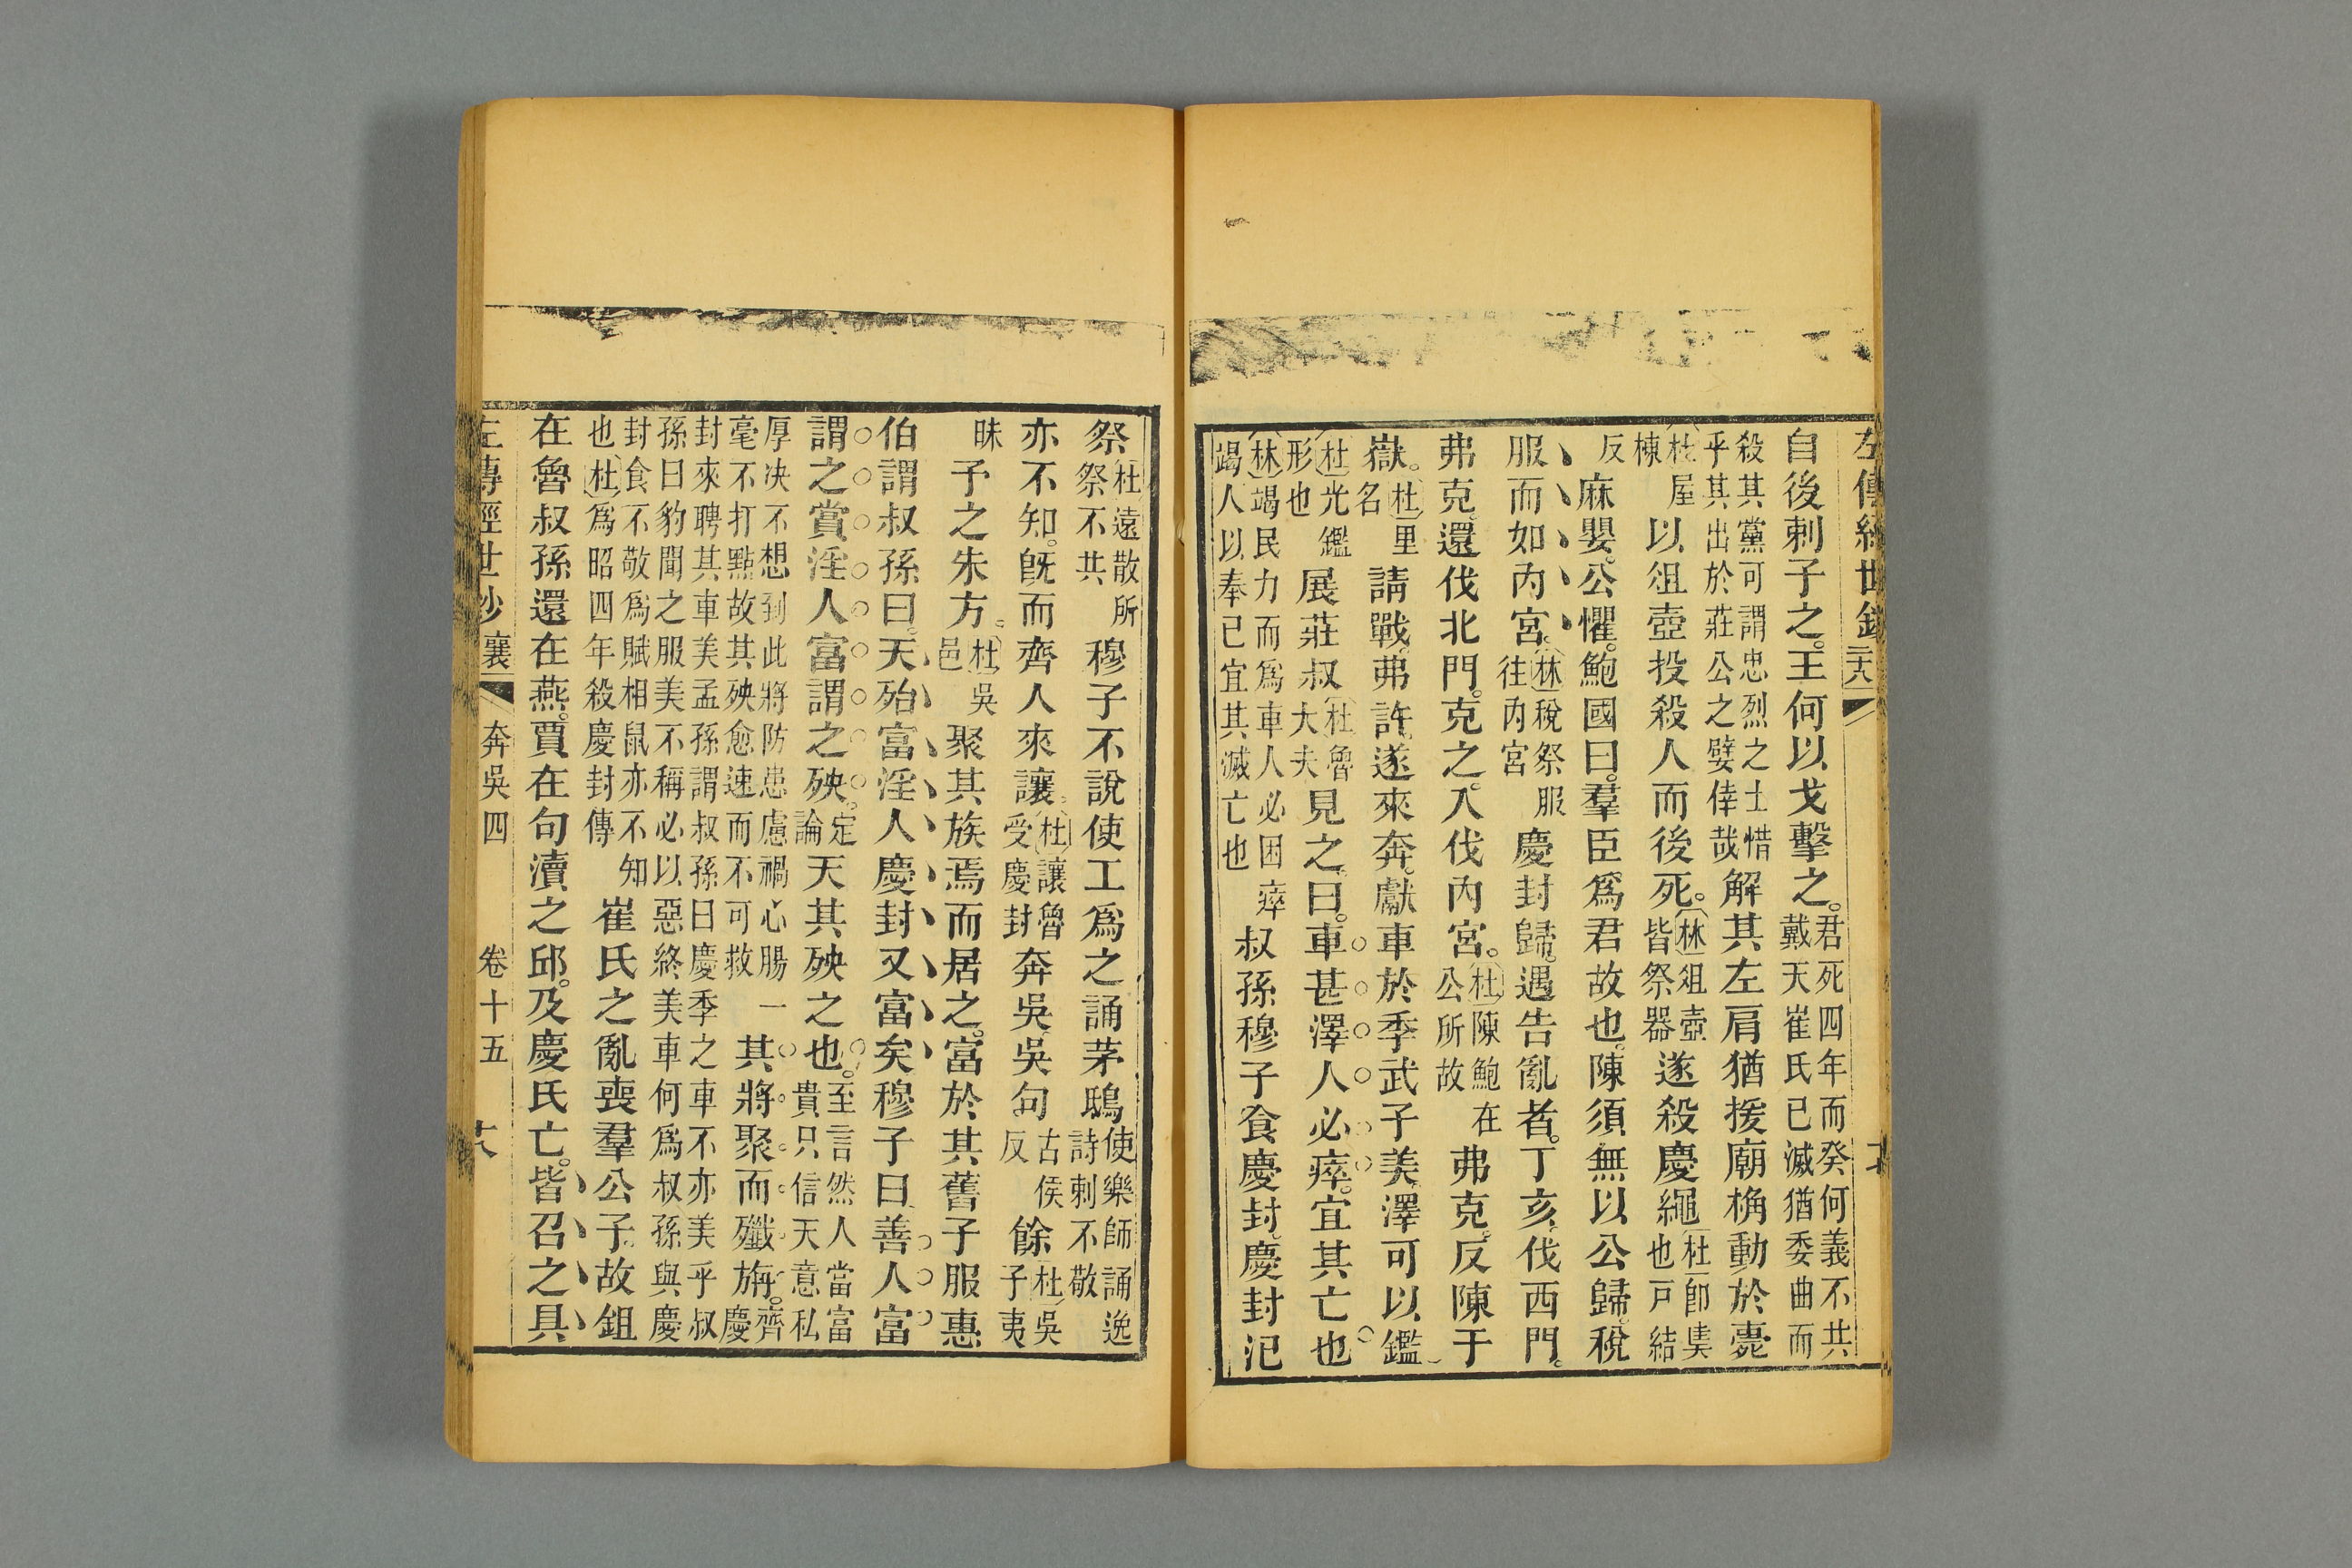 左傳經世鈔 二十八
自後刺子之。王何以戈擊之。君死四年而癸何義不共戴天崔氏已滅猶委曲而
殺其黨可謂忠烈之士惜乎其出於莊公之嬖倖哉解其左肩猶援廟桷動於甍
杜屋棟以俎壺投殺人而後死。林俎壺皆祭器遂殺慶繩杜卽奊也戸結
反麻嬰。公懼。鮑國曰。羣臣爲君故也。陳須無以公歸。稅
服而如內宮。林稅祭服往內宮慶封歸。遇告亂者。丁亥。伐西門。
弗克。還伐北門。克之。入伐內宮。杜陳鮑在公所故弗克。反陳于
嶽。杜里名請戰。弗許。遂來奔。獻車於季武子。美澤可以鑑
杜光鑑形也展莊叔杜魯大夫見之。曰。車甚澤人必瘁。宜其亡也
林竭民力而爲車人必困瘁竭人以奉已宜其滅亡也叔孫穆子食慶封。慶封氾
祭杜遠散所祭不共穆子不說使工爲之誦茅鴟使樂師誦逸詩刺不敬
亦不知。旣而齊人來讓。杜讓魯受慶封奔吳吳句古侯反餘杜吳子夷
昧予之朱方。杜吳邑聚其族焉而居之。富於其舊子服惠
伯謂叔孫曰。天殆富淫人慶封又富矣穆子曰善人富
謂之賞淫人富謂之殃。定論天其殃之也。至言然人當富貴只信天意私
厚決不想到此將防患慮禍心腸一毫不打點故其殃愈速而不可救其將聚而殲旃。齊慶
封來聘其車美孟孫謂叔孫曰慶季之車不亦美乎叔孫曰豹聞之服美不稱必以惡終美車何爲叔孫與慶
封食不敬爲賦相鼠亦不知也杜爲昭四年殺慶封傳崔氏之亂喪羣公子。故鉏
在魯叔孫還在燕。賈在句瀆之邱。及慶氏亡。皆召之具
左傳經世鈔 襄 奔吳四 卷十五